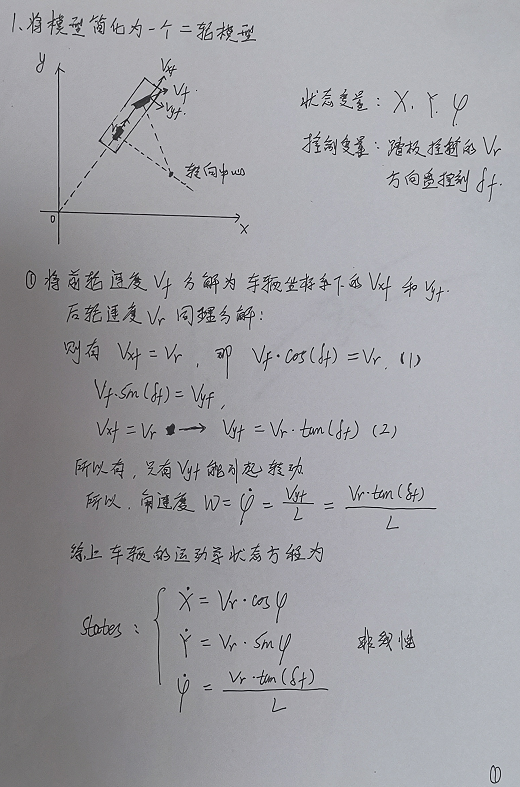 1、将模型简化为一个二轮模型
y
Vxf
Vf.
Vyf.
转向中心
0
X
状态变量：X. Y. φ
控制变量：踏板控制的Vr
方向盘控制δf.
① 将前轮速度Vf分解为车辆坐标系下的Vxf和Vyf.
后轮速度Vr同理分解：
则有 Vxf = Vr，即 Vf·cos(δf) = Vr. (1)
Vf·sin(δf) = Vyf,
Vxf = Vr → Vyf = Vr·tan(δf) (2)
所以有，只有Vyf能引起转动
所以，角速度 W = φ̇ = Vyf/L = Vr·tan(δf)/L
综上车辆的运动学状态方程为
States：
Ẋ = Vr·cosφ
Ẏ = Vr·sinφ 非线性
φ̇ = Vr·tan(δf)/L
①